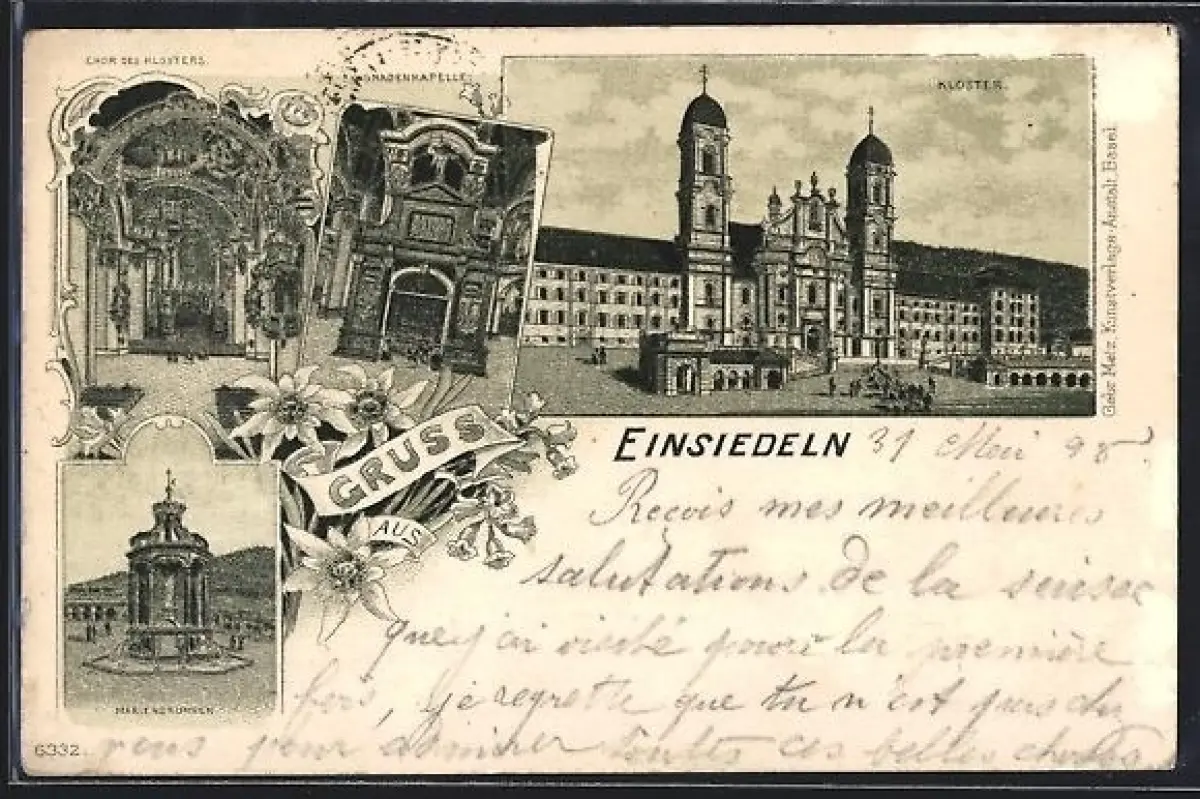 CHOR DES KLOSTERS.
GNADENKAPELLE.
KLOSTER.
Gebr. Metz, Kunstverlags-Anstalt, Basel.
GRUSS
AUS
EINSIEDELN 31 Mai 98.
Reçois mes meilleures
salutations de la suisse
que j'ai visité pour la première
fois, je regrette que tu n'est pas
pour admirer toutes ces belles choses
MARIENBRUNNEN
6332